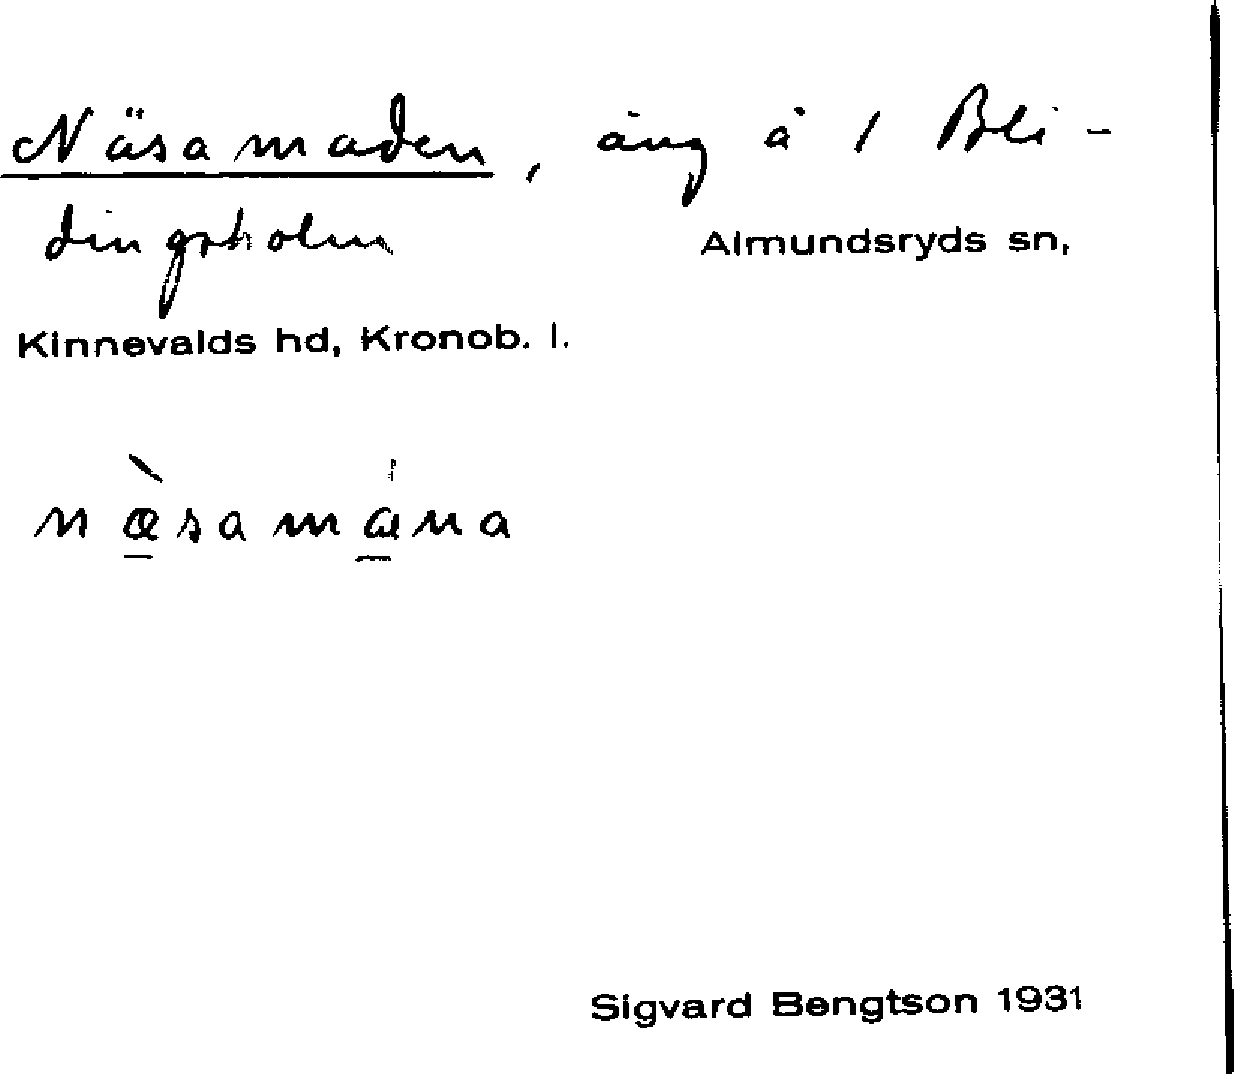 Näsamaden, äng å 1 Bli-
dingsholm Almundsryds sn,
Kinnevalds hd, Kronob. l.
næ̱̀samá̱na
Sigvard Bengtson 1931